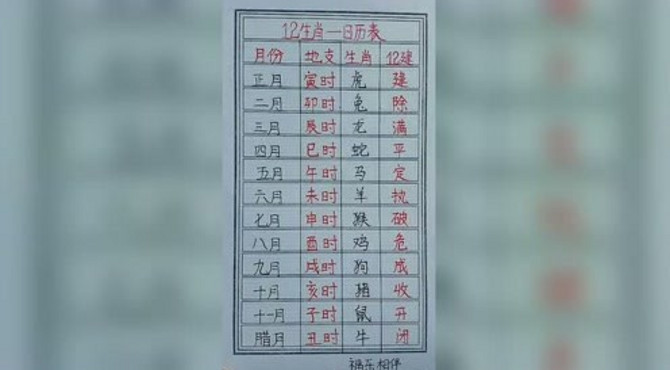 12生肖一日历表
月份 地支 生肖 12建
正月 寅时 虎 建
二月 卯时 兔 除
三月 辰时 龙 满
四月 巳时 蛇 平
五月 午时 马 定
六月 未时 羊 执
七月 申时 猴 破
八月 酉时 鸡 危
九月 戌时 狗 成
十月 亥时 猪 收
十一月 子时 鼠 开
腊月 丑时 牛 闭
相伴